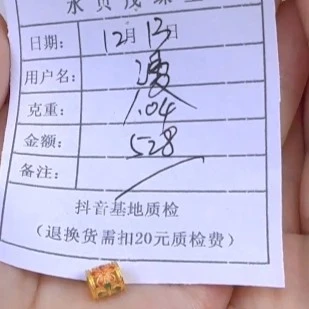 日期：12月13日
用户名：
克重：1.04
金额：528
备注：
抖音基地质检
（退换货需扣20元质检费）